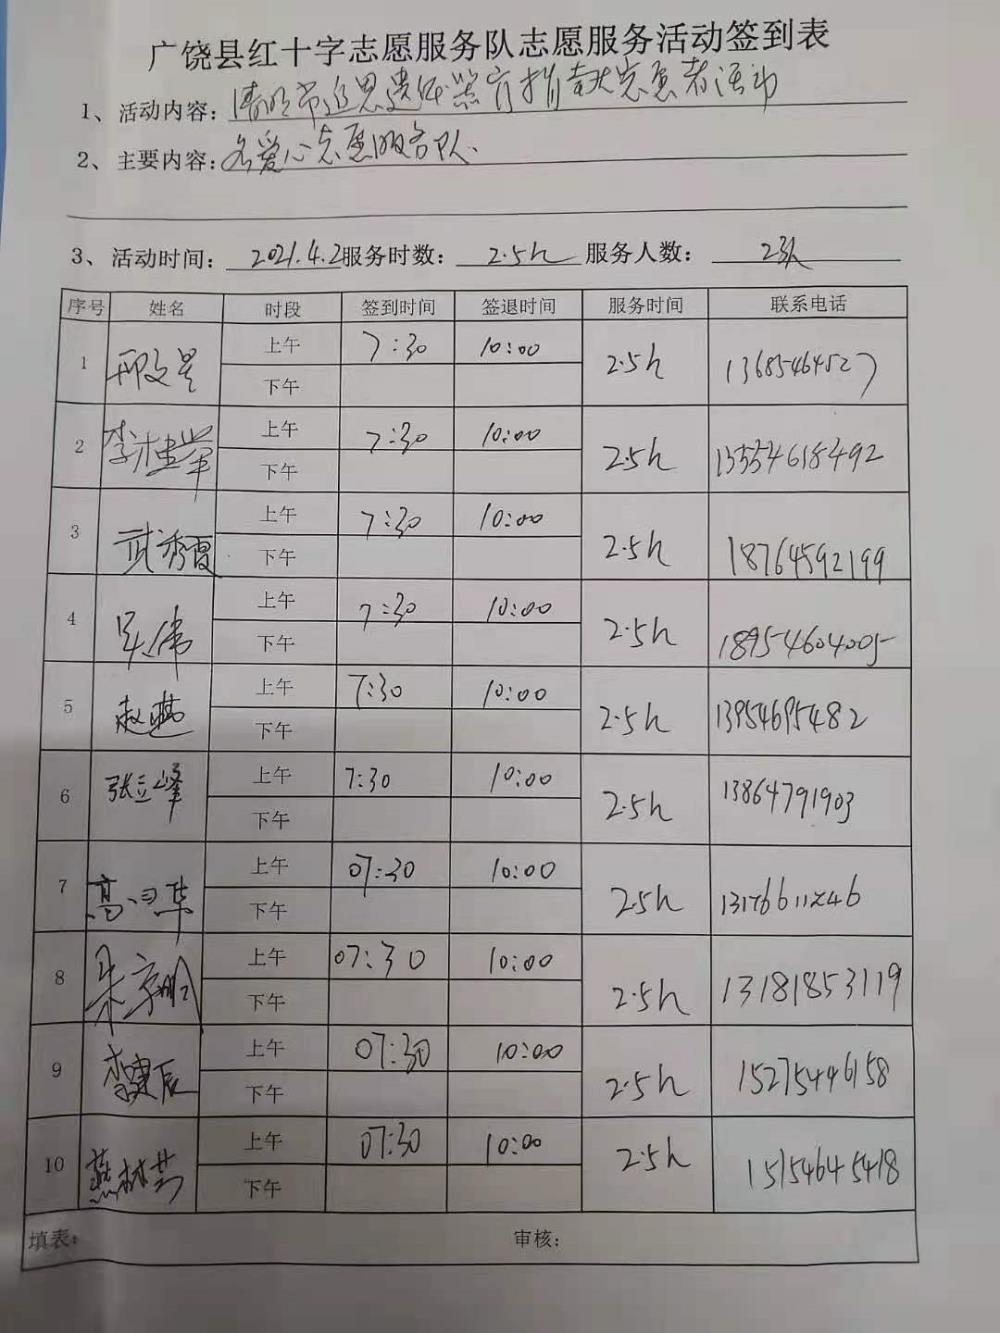 广饶县红十字志愿服务队志愿服务活动签到表
1、活动内容：清明节追思遗体器官捐献志愿者活动
2、主要内容：各爱心志愿服务队.
3、活动时间：2021.4.2 服务时数：2.5h 服务人数：
序号 姓名 时段 签到时间 签退时间 服务时间 联系电话
1 上午 7:30 10:00 2.5h 13685464527
下午
2 李桂荣 上午 7:30 10:00 2.5h
下午
3 武秀霞 上午 7:30 10:00 2.5h 18764592199
下午
4 吴伟 上午 7:30 10:00 2.5h 18954604005
下午
5 赵燕 上午 7:30 10:00 2.5h 13954695482
下午
6 张立峰 上午 7:30 10:00 2.5h 13864791903
下午
7 上午 07:30 10:00 2.5h
下午
8 上午 07:30 10:00 2.5h 13181853119
下午
9 李建辰 上午 07:30 10:00 2.5h 15275446158
下午
10 燕树芳 上午 07:30 10:00 2.5h 15154645418
下午
填表： 审核：